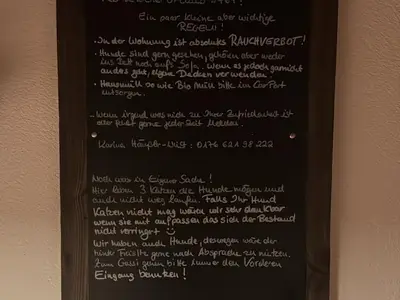 Ein paar kleine aber wichtige
REGELN!
• In der Wohnung ist absolutes RAUCHVERBOT!
• Hunde sind gern gesehen, gehören aber weder
ins Bett noch aufs Sofa. Wenn es jedoch garnicht
anders geht, eigene Decken verwenden.
• Hausmüll so wie Bio Müll bitte im CarPort
entsorgen.
- Wenn irgend was nicht zu Ihrer Zufriedenheit ist
oder fehlt gerne jeder Zeit Melden.
Karina : 0176 621 98 222
Noch was in Eigene Sache!
Hier leben 3 Katzen die Hunde mögen und
auch nicht weg laufen. Falls Ihr Hund
Katzen nicht mag wären wir sehr dankbar
wenn sie mit aufpassen das sich der Bestand
nicht verringert ☺
Wir haben auch Hunde, deswegen wäre der
hintere gerne nach Absprache zu nutzen.
Zum Gassi gehen bitte immer den Vorderen
Eingang benutzen!